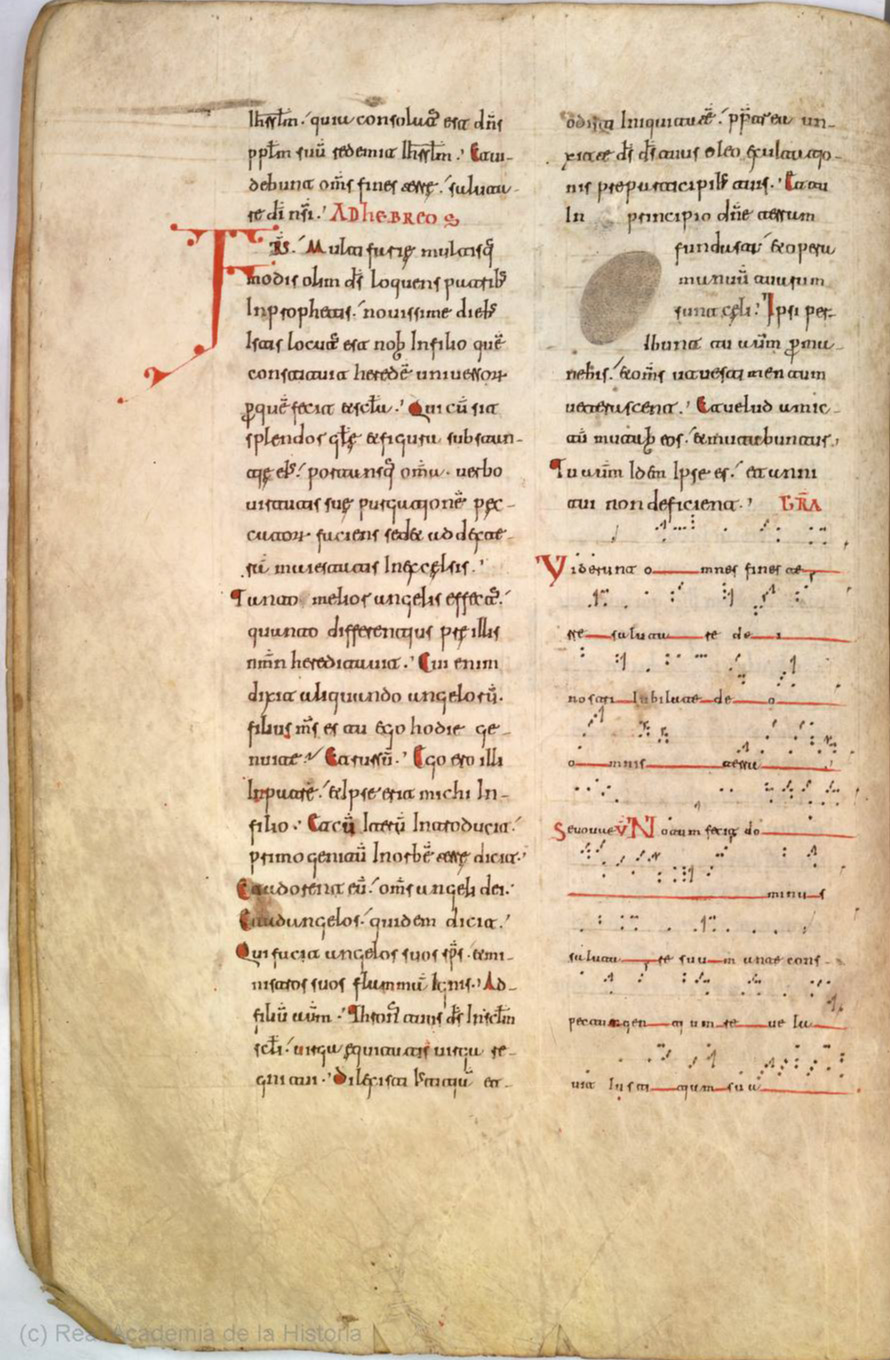 Ihrslm̄. quia consolat᾿ est dn̄s
pplm̄ suū redemit Ihrslm̄. Et ui-
debunt om̄s fines terrę. saluta-
re dī nr̄i. AD hEBREOS
FR̄S. Multifarię multisq̄
modis olim ds̄ loquens patrib᾿
In prophetis. nouissime dieb᾿
Istis locut᾿ est nob᾿ In filio quē
constituit heredē uniuersor̄
p quē fecit et scl̄a. Qui cū sit
splendor gl̄ę et figura substan-
tię ei᾿. portansq̄ omā. uerbo
uirtutis suę purgationē pec-
cator̄ faciens sedet ad dexte-
rā maiestatis In excęlsis.
Tanto melior angelis effect᾿.
quanto differentius prę illis
nm̄n hereditauit. Cui enim
dixit aliquando angelorū.
filius m̄s es tu Ego hodie ge-
nui te Et rursū. Ego ero illi
In patrē. et Ipse erit michi In
filio. Et cū Iterū Introducit
primogenitū In orbē terrę dicit.
Et adorent eū. om̄s angeli dei.
Et ad angelos quidem dicit.
Qui facit angelos suos sp̄s. et mi-
nistros suos flammā Ignis. Ad
filiū aūm. Thron᾿ tuus ds̄ In scl̄m
scl̄i. uirga ęquitatis uirga re-
gni tui. Dilexisti Iustitiā et
odisti Iniquitatē. pp̄terea un-
xit te ds̄ ds̄ tuus oleo exultatio-
nis pre participib᾿ tuis. Et tu
In principio dn̄e terram
fundasti et opera
manuū tuarum
sunt cęli. Ipsi per-
ibunt tu aūm pmā-
nebis. et om̄s ut uestimentum
ueterascent. Et uelud amic-
tū mutab᾿ eos. et mutabuntur
Tu aūm Idēm Ipse es. et anni
tui non deficient. GR̄A
Viderunt omnes fines te
rre salutare dei
nostri Iubilate deo
omnis terra
Seuouae V̄ Notum fecit do
minus
salutare suum ante cons-
pectum gentium reuela
uit Iustitiam sua
(c) Real Academia de la Historia